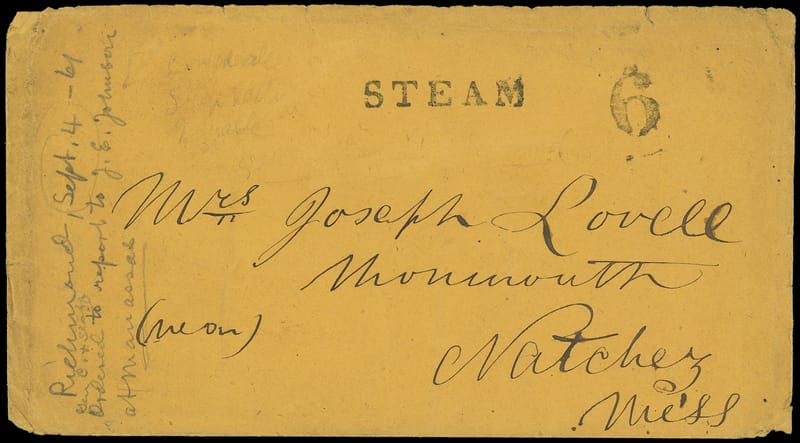 STEAM 6
Mrs Joseph Lovell
Monmouth
(near)
Natchez
Miss
Richmond, Sept. 4 - 61
Gen
Ordered to report to J. E. Johnson
at Manassas